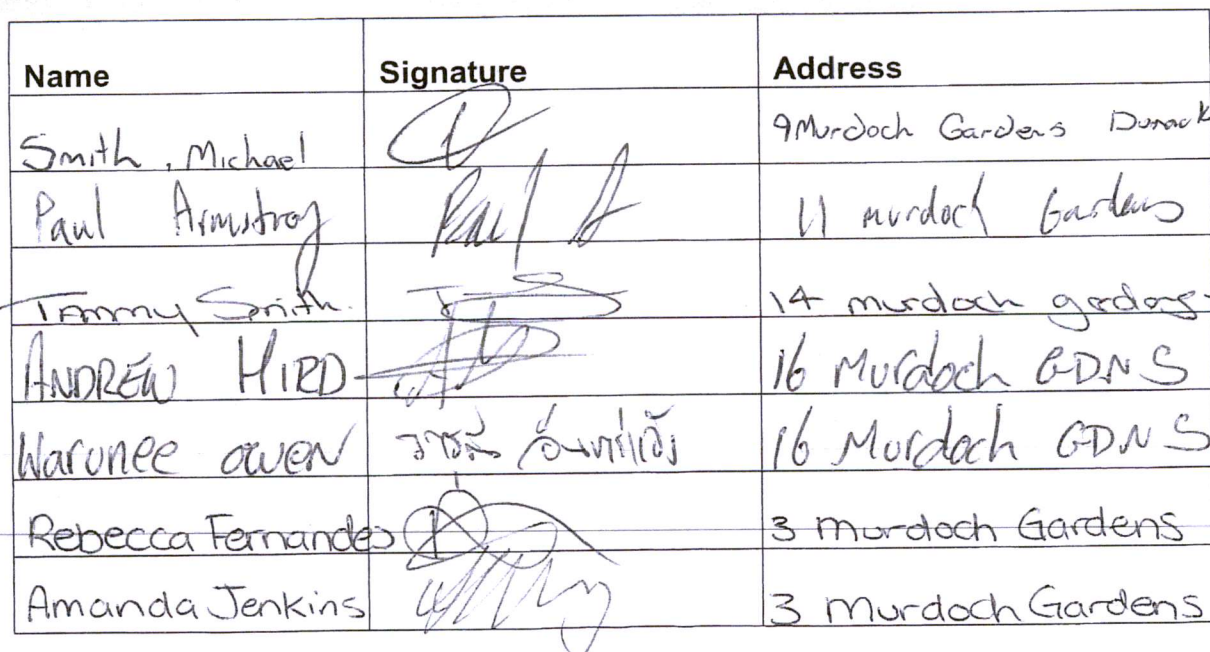 Name Signature Address
Smith, Michael 9 Murdoch Gardens Durack
Paul Armstrong Paul A 11 murdoch Gardens
Tammy Smith. 14 murdoch gardens
ANDREW HIRD 16 Murdoch GDNS
Warunee owen 16 Murdoch GDNS
Rebecca Fernandes 3 Murdoch Gardens
Amanda Jenkins 3 Murdoch Gardens